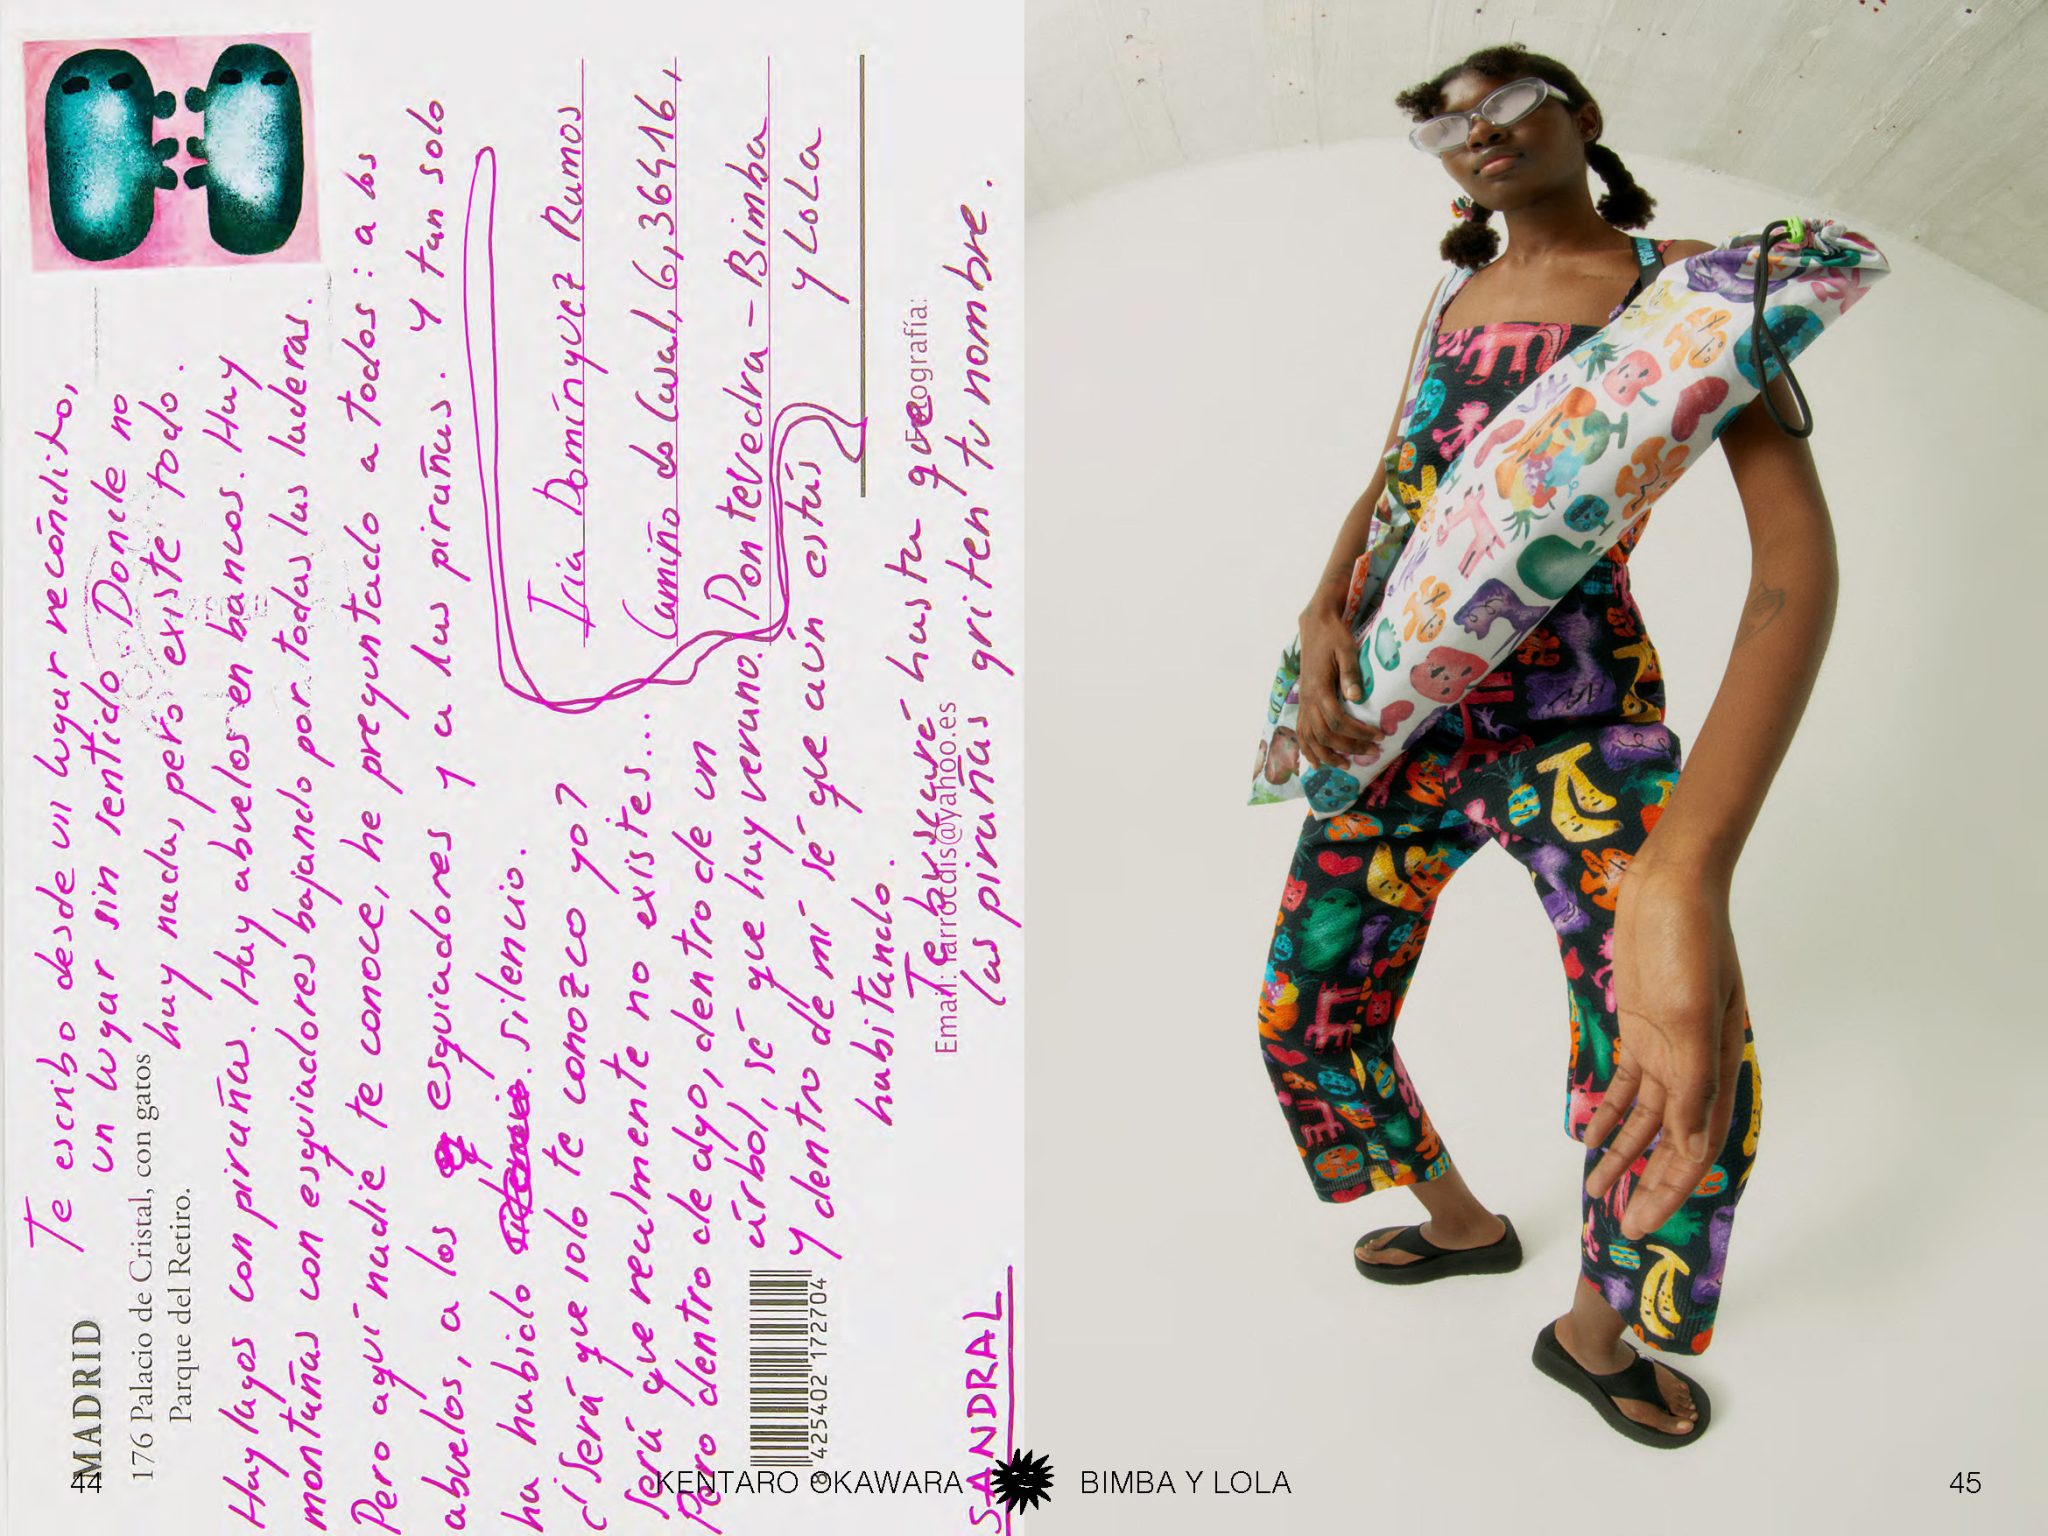 MADRID
176 Palacio de Cristal, con gatos
Parque del Retiro.
Te escribo desde un lugar recóndito,
un lugar sin sentido. Donde no
hay nada, pero existe todo.
Hay lagos con pirañas. Hay abuelos en bancos. Hay
montañas con esquiadores bajando por todas las laderas.
Pero aquí nadie te conoce, he preguntado a todos : a los
abuelos, a los esquiadores y a las pirañas. y tan solo
ha habido silencio.
¿Será que solo te conozco yo?
será que realmente no existes...
Pero dentro de algo, dentro de un
árbol, sé que hay verano.
y dentro de mí sé que aún estás
habitando.
Te buscaré hasta que
las pirañas griten tu nombre.
SANDRAL
Iria Domínguez Ramos
Camiño do Casal, 6, 36416,
Pontevedra - Bimba
y Lola
Fotografía:
Email: farrocdis@yahoo.es
8 425402 172704
44
KENTARO OKAWARA
BIMBA Y LOLA
45